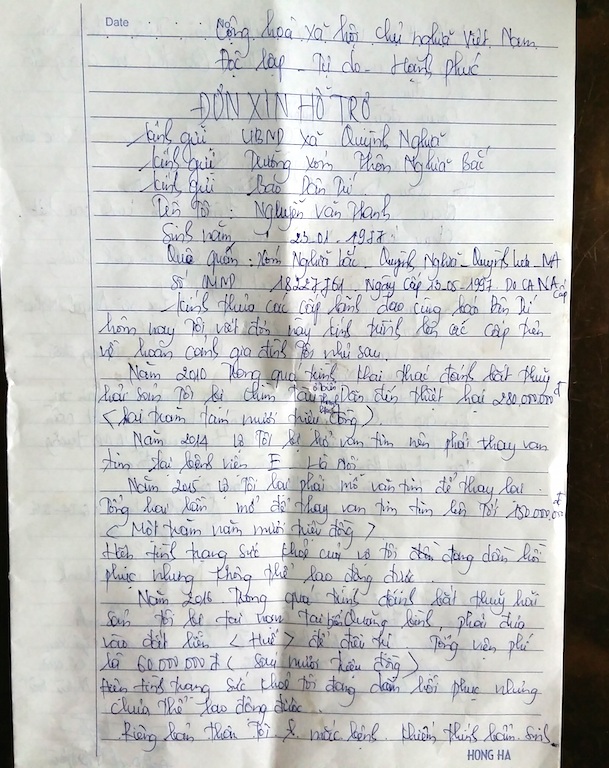 Date No
Cộng hoà xã hội chủ nghĩa Việt Nam
Độc lập - Tự do - Hạnh phúc
ĐƠN XIN HỖ TRỢ
Kính gửi UBND xã Quỳnh Nghĩa
Kính gửi Trưởng xóm Thôn Nghĩa Bắc
Kính gửi Báo Dân Trí
Tên Tôi : Nguyễn Văn Hanh
Sinh năm 23.01.1987
Quê quán : Xóm Nghĩa bắc - Quỳnh Nghĩa - Quỳnh Lưu - NA
Số CMND Ngày cấp DO CA NA cấp
Kính thưa các cấp lãnh đạo cùng báo Dân Trí
hôm nay Tôi viết đơn này kính trình lên các cấp trên
về hoàn cảnh gia đình Tôi như sau.
Năm 2010 Trong quá trình khai thác đánh bắt thuỷ
hải sản Tôi bị chìm tàu Dẫn đến thiệt hại 280.000.000đ
< hai trăm tám mươi triệu đồng >
Năm 2014 vợ Tôi bị hở van tim nên phải thay van
tim tại bệnh viện E Hà Nội
Năm 2015 vợ Tôi lại phải mổ van tim để thay lại.
Tổng hai lần mổ để thay van tim lên Tới 150.000.000đ
< Một trăm năm mươi triệu đồng >
Hiện tình trạng sức khoẻ của vợ tôi đang dần hồi
phục nhưng không thể lao động được.
Năm 2016 Trong quá trình đánh bắt thuỷ hải
sản Tôi bị tai nạn tại Quảng bình, phải đưa
vào đất liền < Huế > để điều trị Tổng viện phí
là 60.000.000đ ( Sáu mươi triệu đồng )
Hiện tình trạng sức khoẻ Tôi đang dần hồi phục nhưng
chưa thể lao động được
Riêng bản thân Tôi bệnh Khiếm thính bẩm sinh
HONG HA